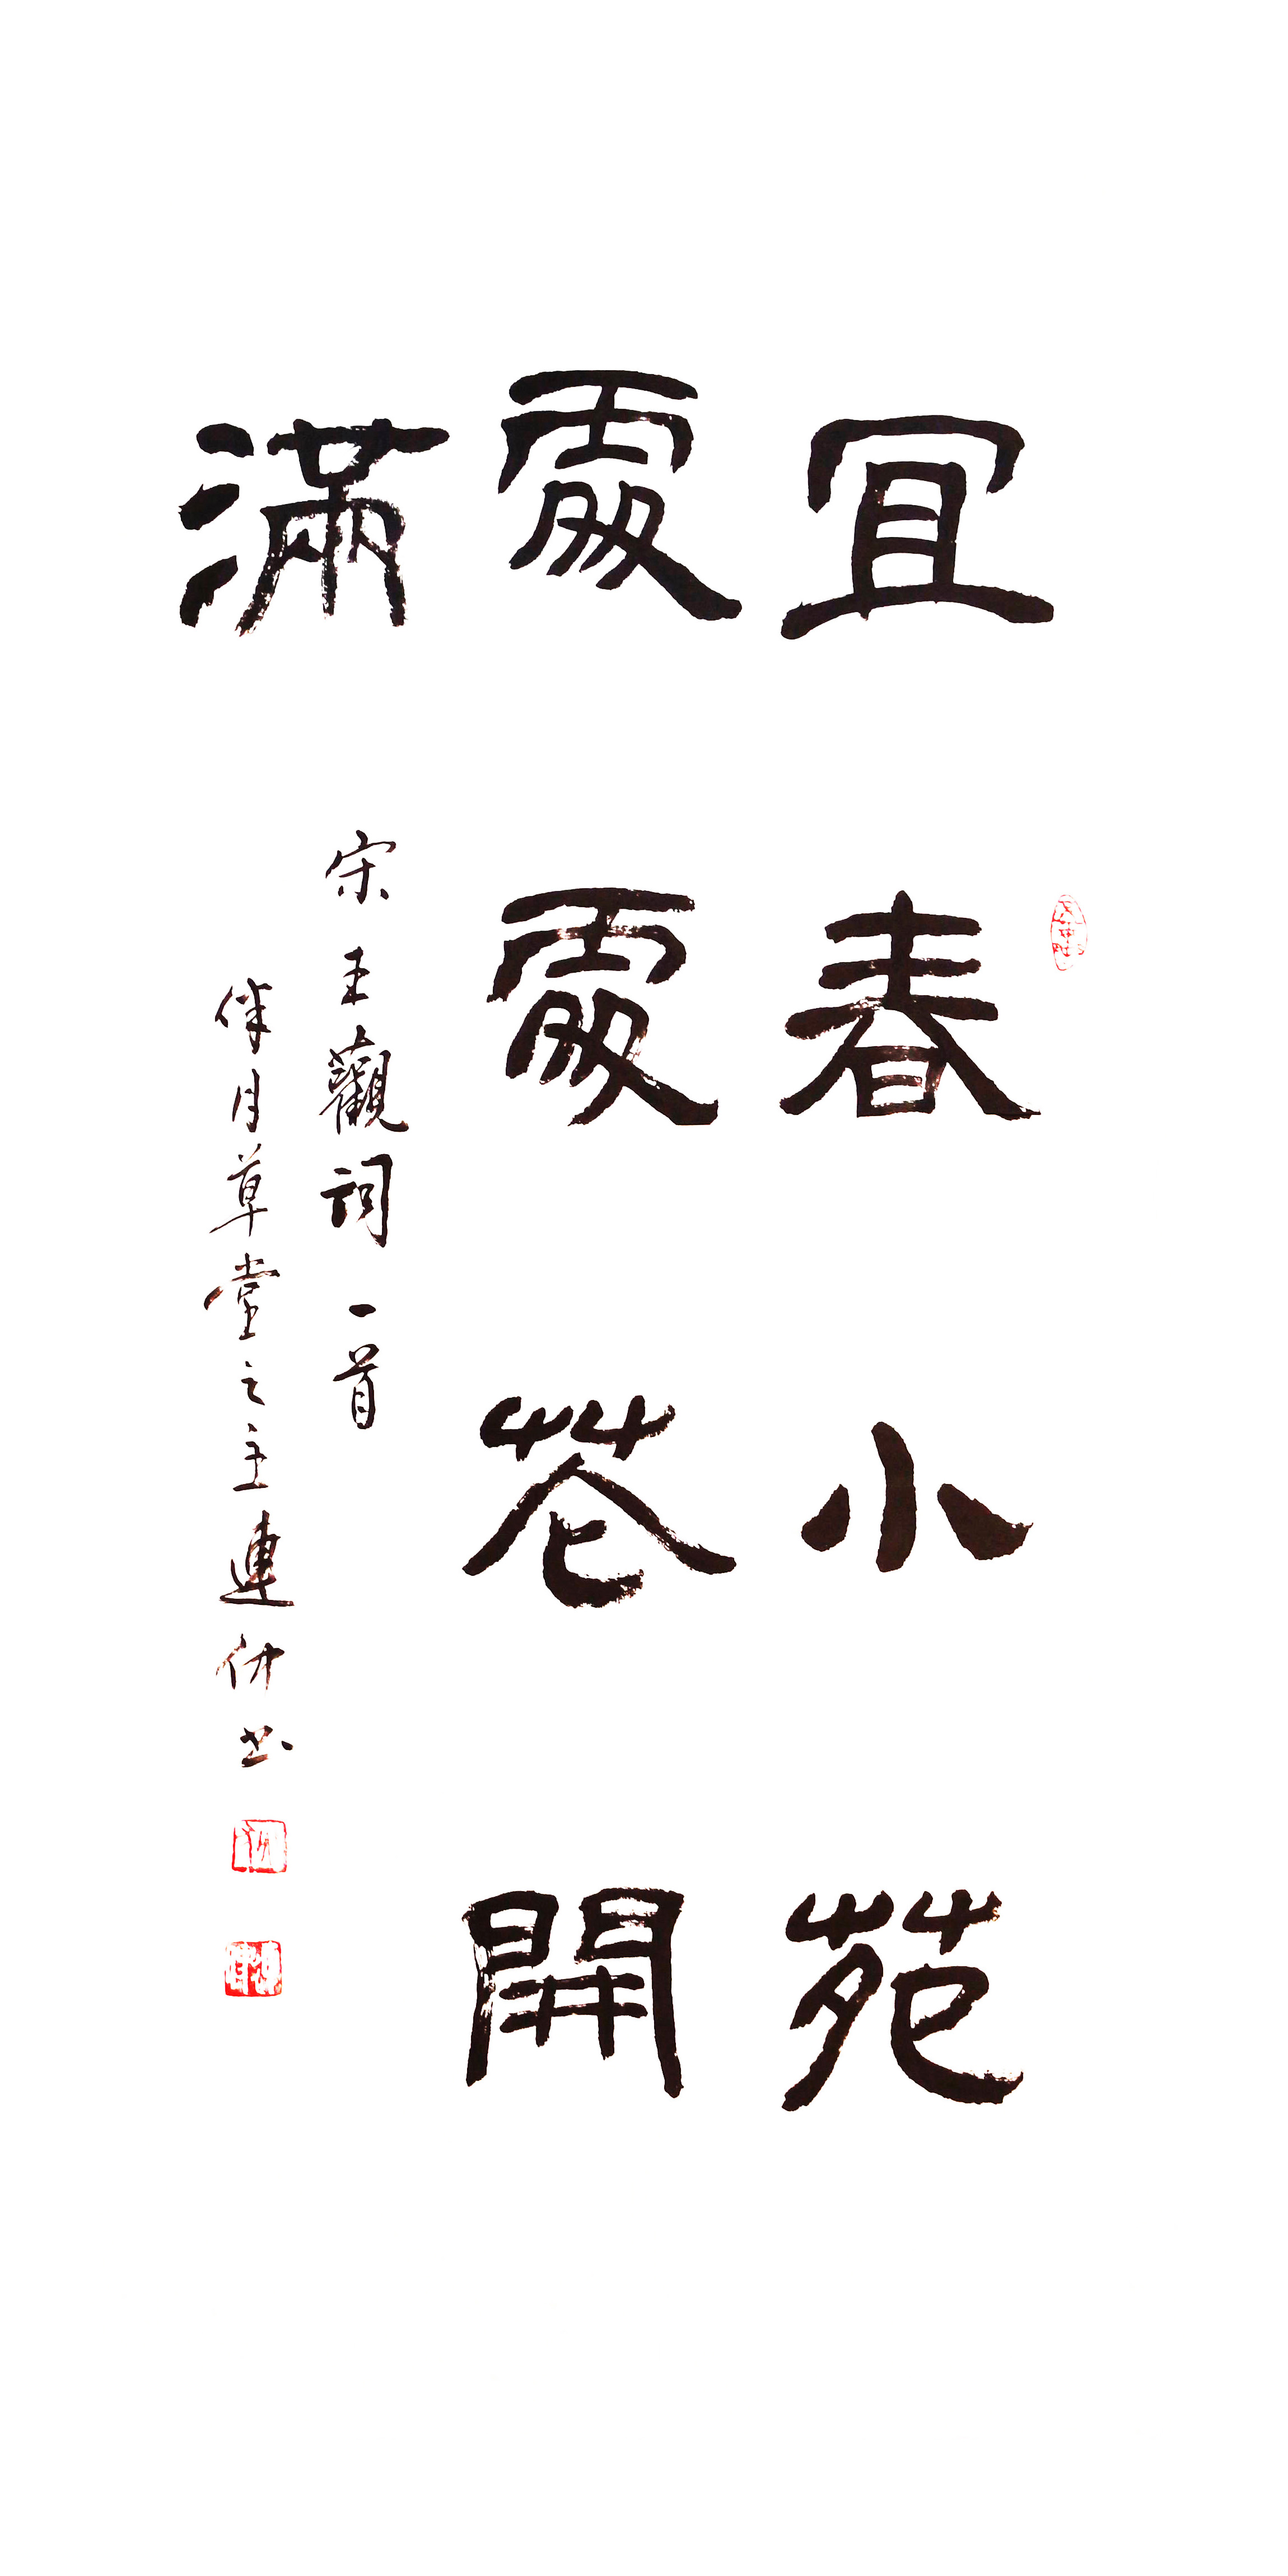 宜春小苑
處處花開
滿
宋王觀詞一首
伴月草堂之主連仲书